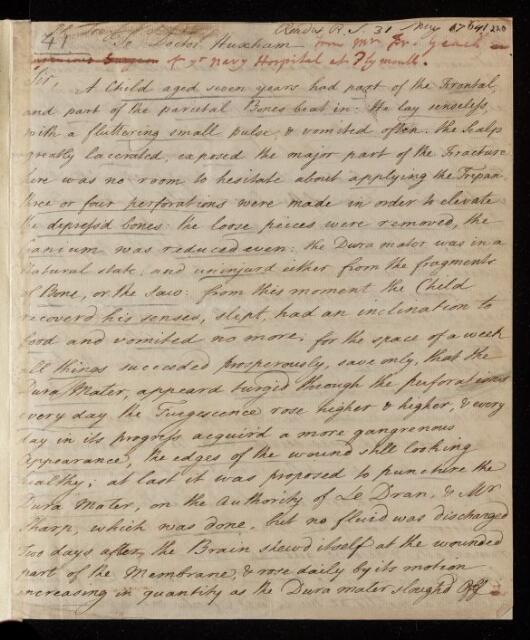 41 Read at R. S. 31 May 1764 220
To Doctor Huxham from Mr Fr. Geach
Surgeon of ye Navy Hospital at Plymouth.
Sir,
A Child aged seven years had part of the Frontal,
and part of the parietal Bones beat in: He lay senseless,
with a fluttering small pulse, & vomited often. the Scalp
greatly lacerated, exposed the major part of the Fracture
here was no room to hesitate about applying the Trepan
three or four perforations were made in order to elevate
the depress'd bones: the loose pieces were removed, the
Cranium was reduced even: the Dura mater was in a
Natural state, and uninjurd either from the fragments
of Bone, or the saw: from this moment the Child
recoverd his senses, slept, had an inclination to
food and vomited no more; for the space of a week
all things succeeded prosperously, save only, that the
Dura Mater, appeard turged through the perforations
every day the Turgescence rose higher & higher, & every
day in its progress acquir'd a more gangrenous
Appearance, the edges of the wound still looking
healthy; at last it was proposed to puncture the
Dura Mater, on the Authority of Le Dran, & Mr
Sharp, which was done, but no fluid was discharged
Two days after, the Brain shewd itself at the wounded
part of the Membrane, & rose daily by its motion
increasing in quantity as the Dura mater sloughd Off